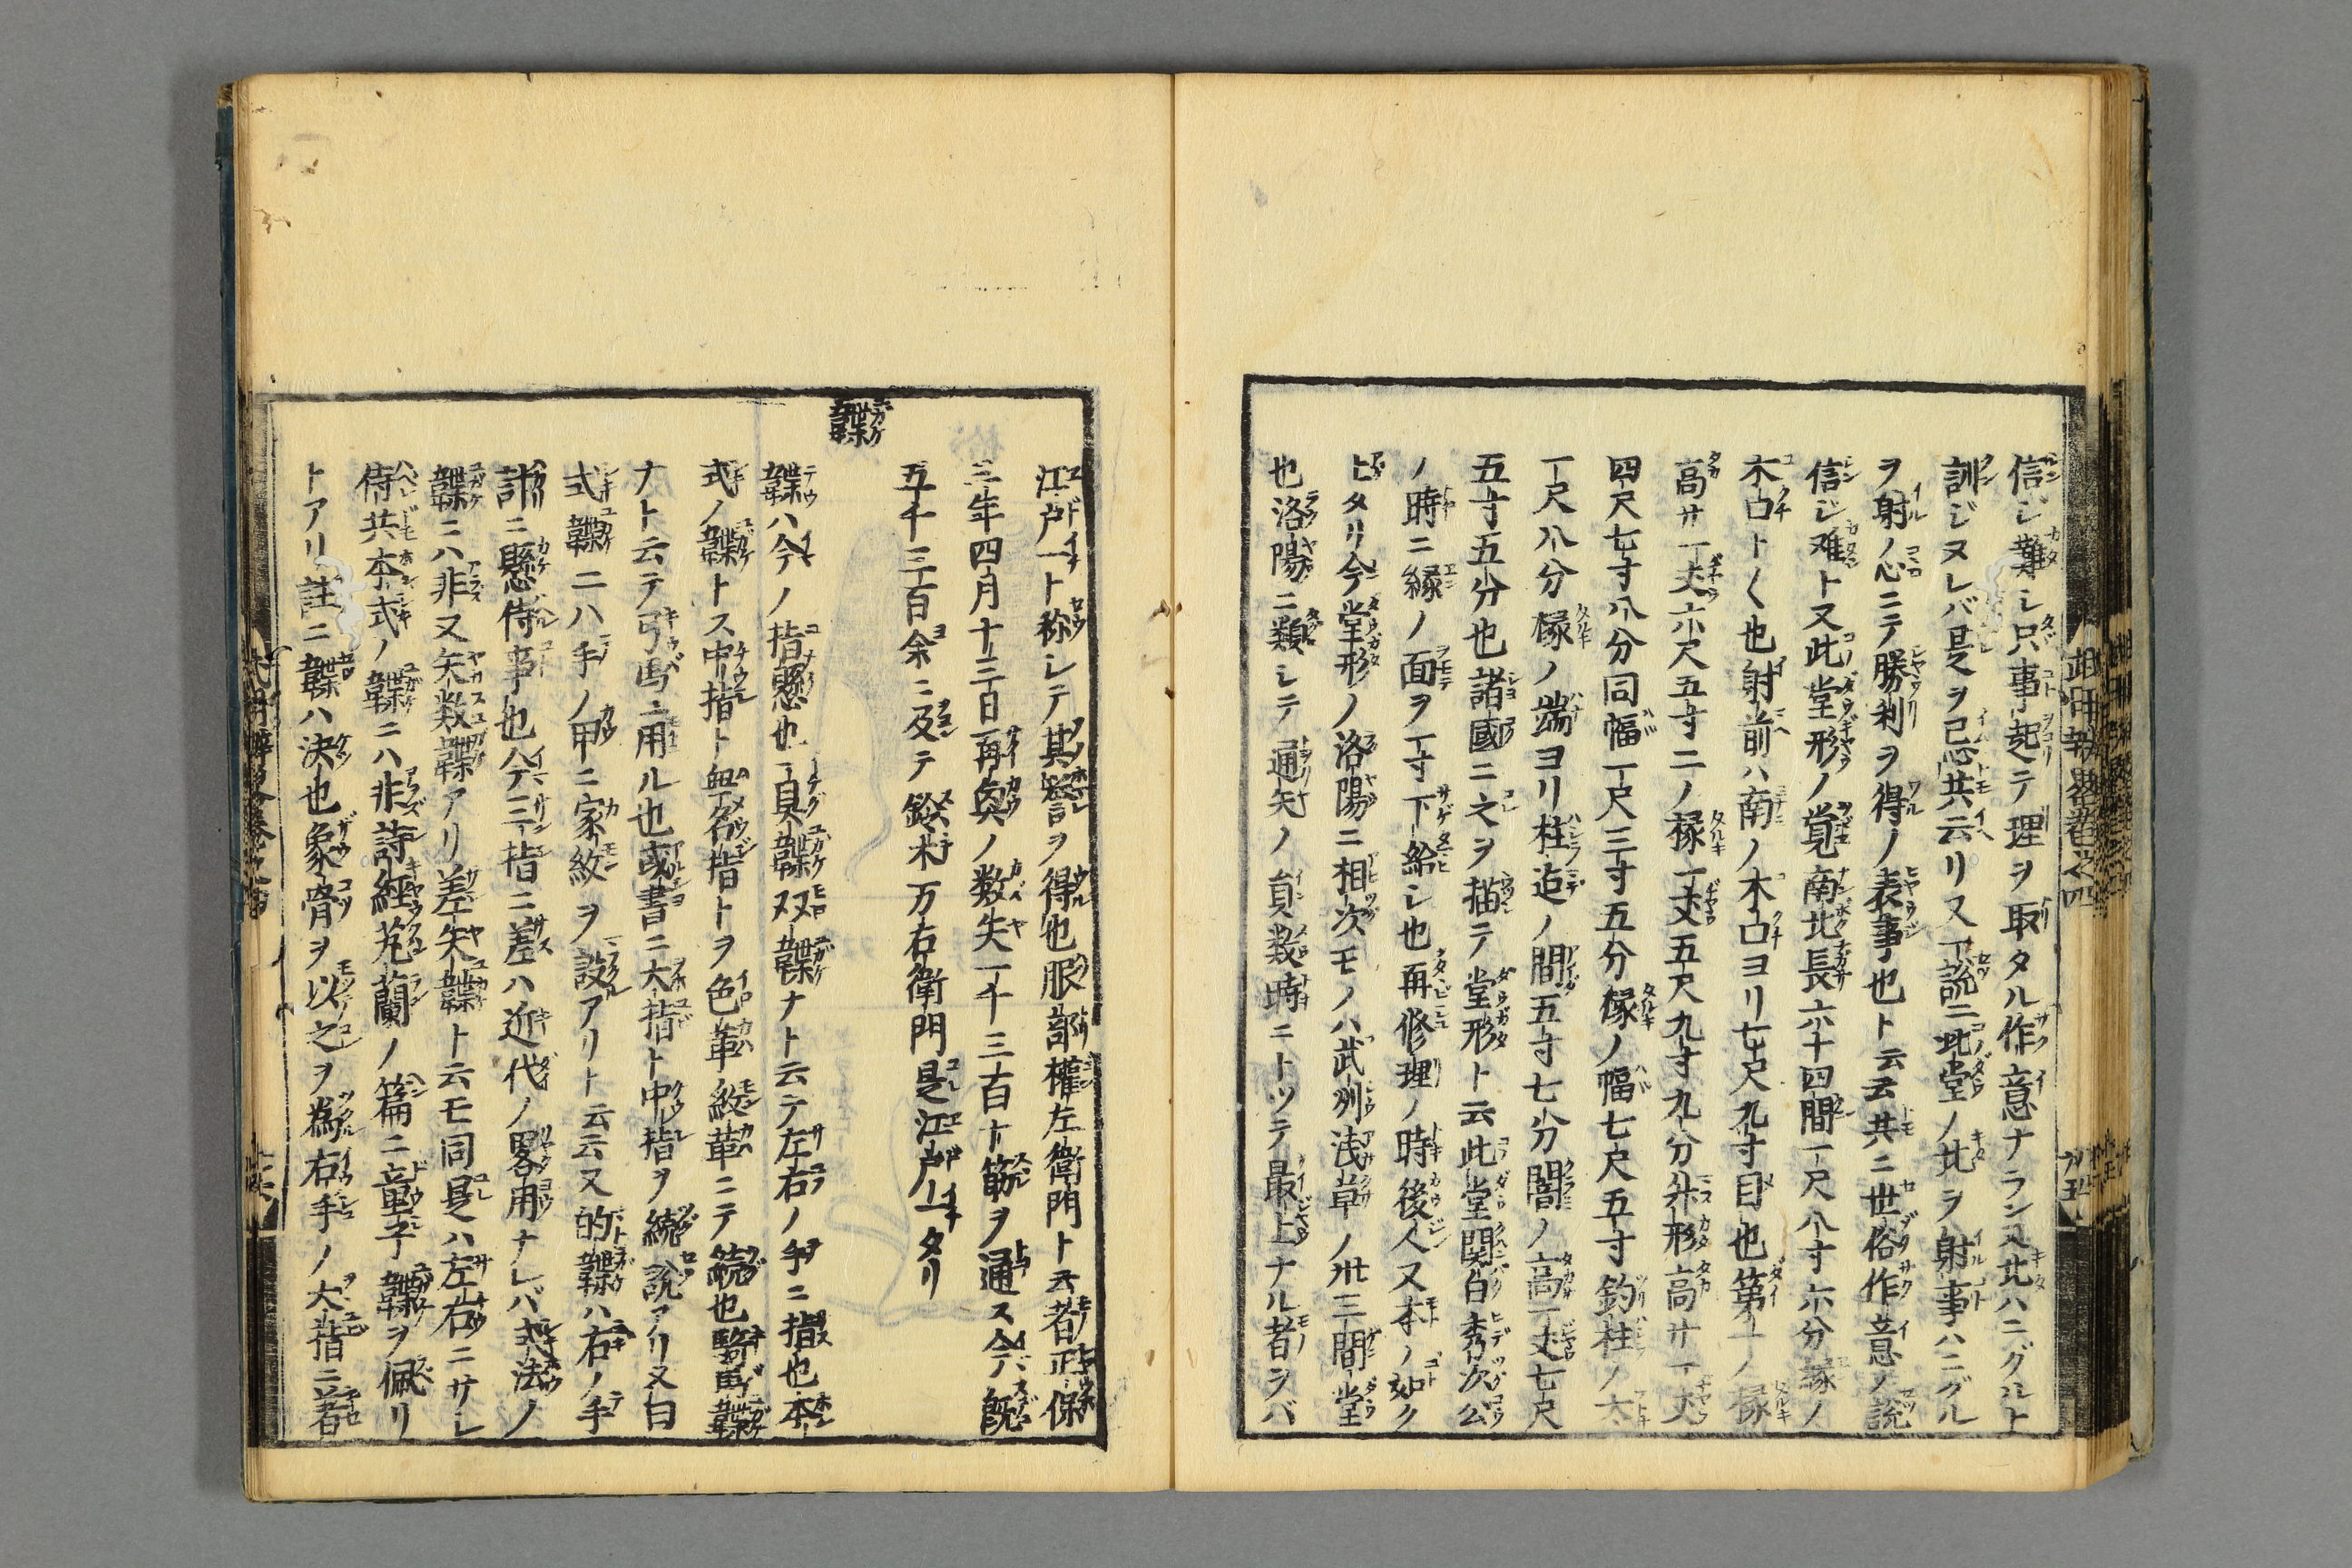 信シ難シ只事起テ理ヲ取タル作意ナラン又北ハニグルト
訓ジヌレバ是ヲ忌共云リ又一說ニ此堂ノ北ヲ射事ハニグル
ヲ射ノ心ニテ勝利ヲ得ノ表事也ト云云共ニ世俗作意ノ說
信ジ难ト又此堂形ノ覚南北長六十四間一尺八寸六分縁ノ
木凸ト〱也射前ハ南ノ木凸ヨリ七尺九寸目也第一ノ椽
高サ一丈六尺五寸二ノ椽一丈五尺九寸九分舛形高サ一丈
四尺七寸八分同幅一尺三寸五分椽ノ幅七尺五寸釣柱ノ大
一尺八分椽ノ端ヨリ柱迠ノ間五寸七分闇ノ高一丈七尺
五寸五分也諸國ニ之ヲ描テ堂形ト云此堂関白秀次公
ノ時ニ縁ノ面ヲ一寸下給シ也再修理ノ時後人又本ノ如ク
ヒタリ今堂形ノ洛陽ニ相次モノハ武州浅草ノ卅三間堂
也洛陽ニ類シテ通矢ノ員数時ニトツテ最上ナル者ヲバ
江戸一ト称シテ其誉ヲ得也服部權左衛門ト云者正保
三年四月十三日再興ノ数矢一千三百十筋ヲ通ス今ハ既
五千三百余ニ及テ鈴木万右衛門是江戸一タリ
韘
韘ハ今ノ指懸也一具韘双韘ナト云テ左右ノ手ニ指也本
式ノ韘トス中指ト無名指トヲ色革紋革ニテ続也騎射韘
ナト云テ弓馬ニ用ル也或書ニ大指ト中指ヲ続說アリ又白
式韘ニハ手ノ甲ニ家紋ヲ設アリト云云又的韘ハ右ノ手
計ニ懸侍事也今三指ニ差ハ近代ノ畧用ナレバ式法ノ
韘ニハ非又矢数韘アリ差矢韘ト云モ同是ハ左右ニサレ
侍共本式ノ韘ニハ非詩経芄蘭ノ篇ニ童子韘ヲ佩リ
トアリ註ニ韘ハ決也象骨ヲ以之ヲ為右手ノ大指ニ著